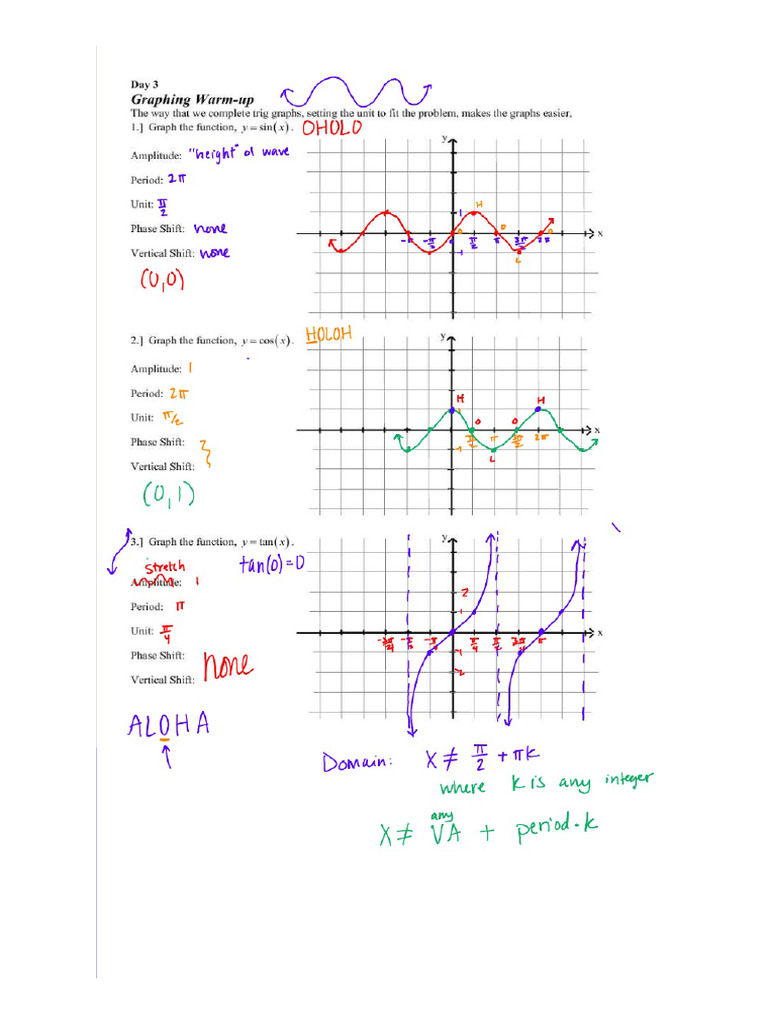 Day 3
Graphing Warm-up
The way that we complete trig graphs, setting the unit to fit the problem, makes the graphs easier,
1.] Graph the function, y = sin(x). OHOLO
Amplitude: "height" of wave
Period: 2π
Unit: π/2
Phase Shift: none
Vertical Shift: none
(0,0)
y
1
H
O
O
O
-π
π/2
π
3π/2
2π
x
-1
L
2.] Graph the function, y = cos(x). HOLOH
Amplitude: 1
Period: 2π
Unit: π/2
Phase Shift:
Vertical Shift:
(0,1)
y
H
H
O
O
π/2
π
3π/2
2π
x
-1
L
3.] Graph the function, y = tan(x). tan(0)=0
stretch
Amplitude: 1
Period: π
Unit: π/4
Phase Shift:
none
Vertical Shift:
y
2
1
-3π/4
-π/2
-π/4
π/4
π/2
3π/4
π
x
-1
-2
ALOHA
Domain: X ≠ π/2 + πk
where k is any integer
any
X ≠ VA + period·k